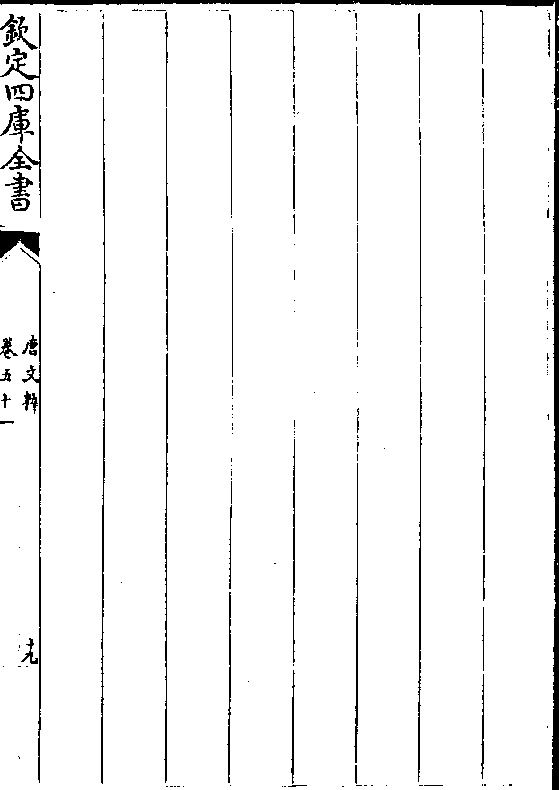 欽定四庫全書
唐文粹
卷五十一
十九